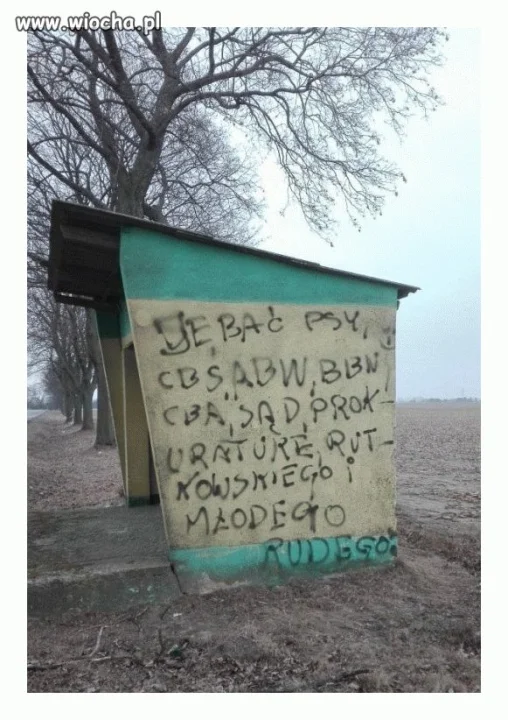 www.wiocha.pl
JEBAĆ PSY,
CBŚ, ABW, BBN,
CBA, SĄD, PROK-
URATURĘ, RUT-
KOWSKIEGO i
MŁODEGO
RUDEGO.